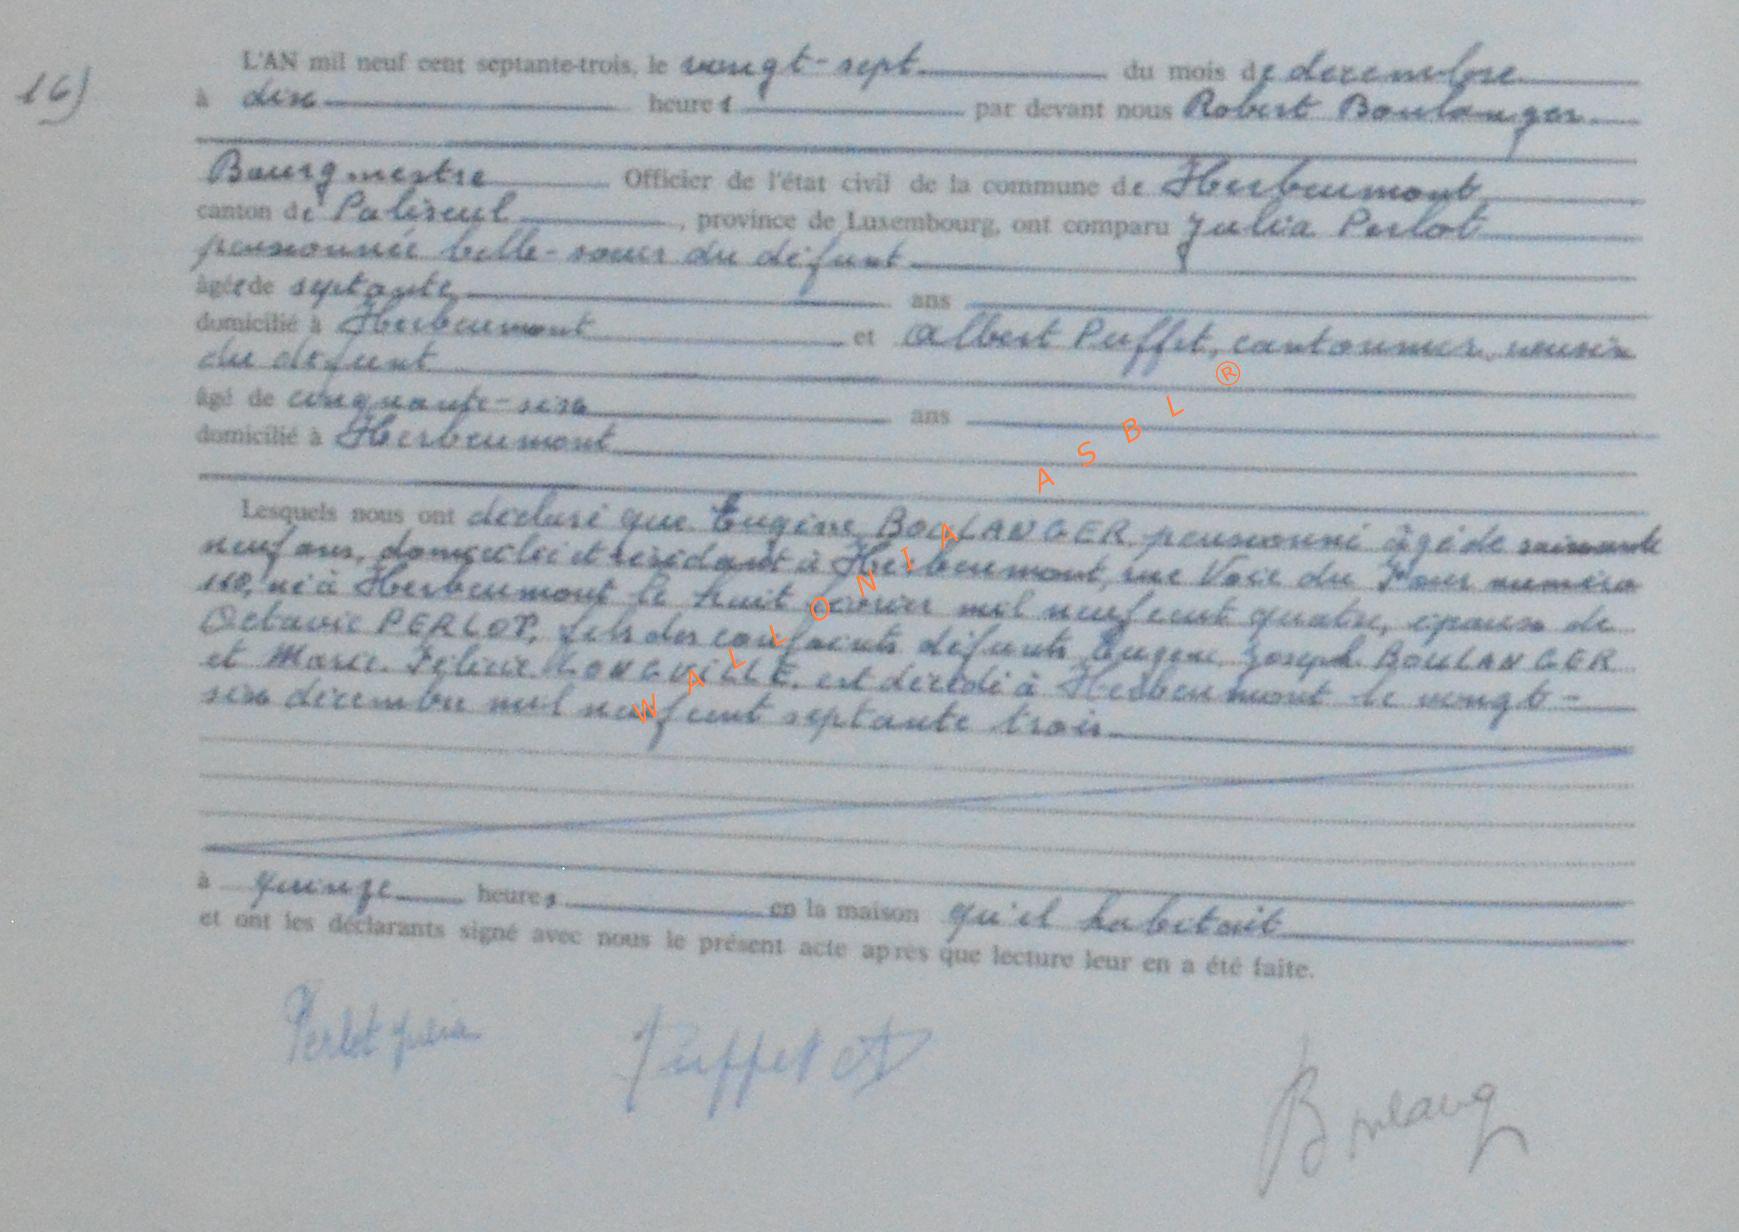 16)
L'AN mil neuf cent septante-trois, le vingt-sept du mois de decembre
à dix heures par devant nous Robert Boulanger
Bourgmestre Officier de l'état civil de la commune de Herbeumont
canton de Paliseul, province de Luxembourg, ont comparu Julia Perlot
pensionnée belle-soeur du défunt
âgée de septante ans
domicilié à Herbeumont et Albert Puffet, cantonnier, cousin
du défunt
âgé de cinquante-six ans
domicilié à Herbeumont
Lesquels nous ont declaré que Eugène BOULANGER pensionné âgé de soixante
neuf ans, domicilié et résidant à Herbeumont, rue Voie du Four numéro
110, né à Herbeumont le huit mil neuf cent quatre, époux de
Octavie PERLOT, fils des conjoints défunts Eugène Joseph BOULANGER
et Marie Félicie LONGVILLE, est décédé à Herbeumont le vingt-
six decembre mil neuf cent septante trois
à quinze heures en la maison qu'il habitait
et ont les déclarants signé avec nous le présent acte après que lecture leur en a été faite.
Perlot Julia Puffet A
Boulang
WALLONIA ASBL ®